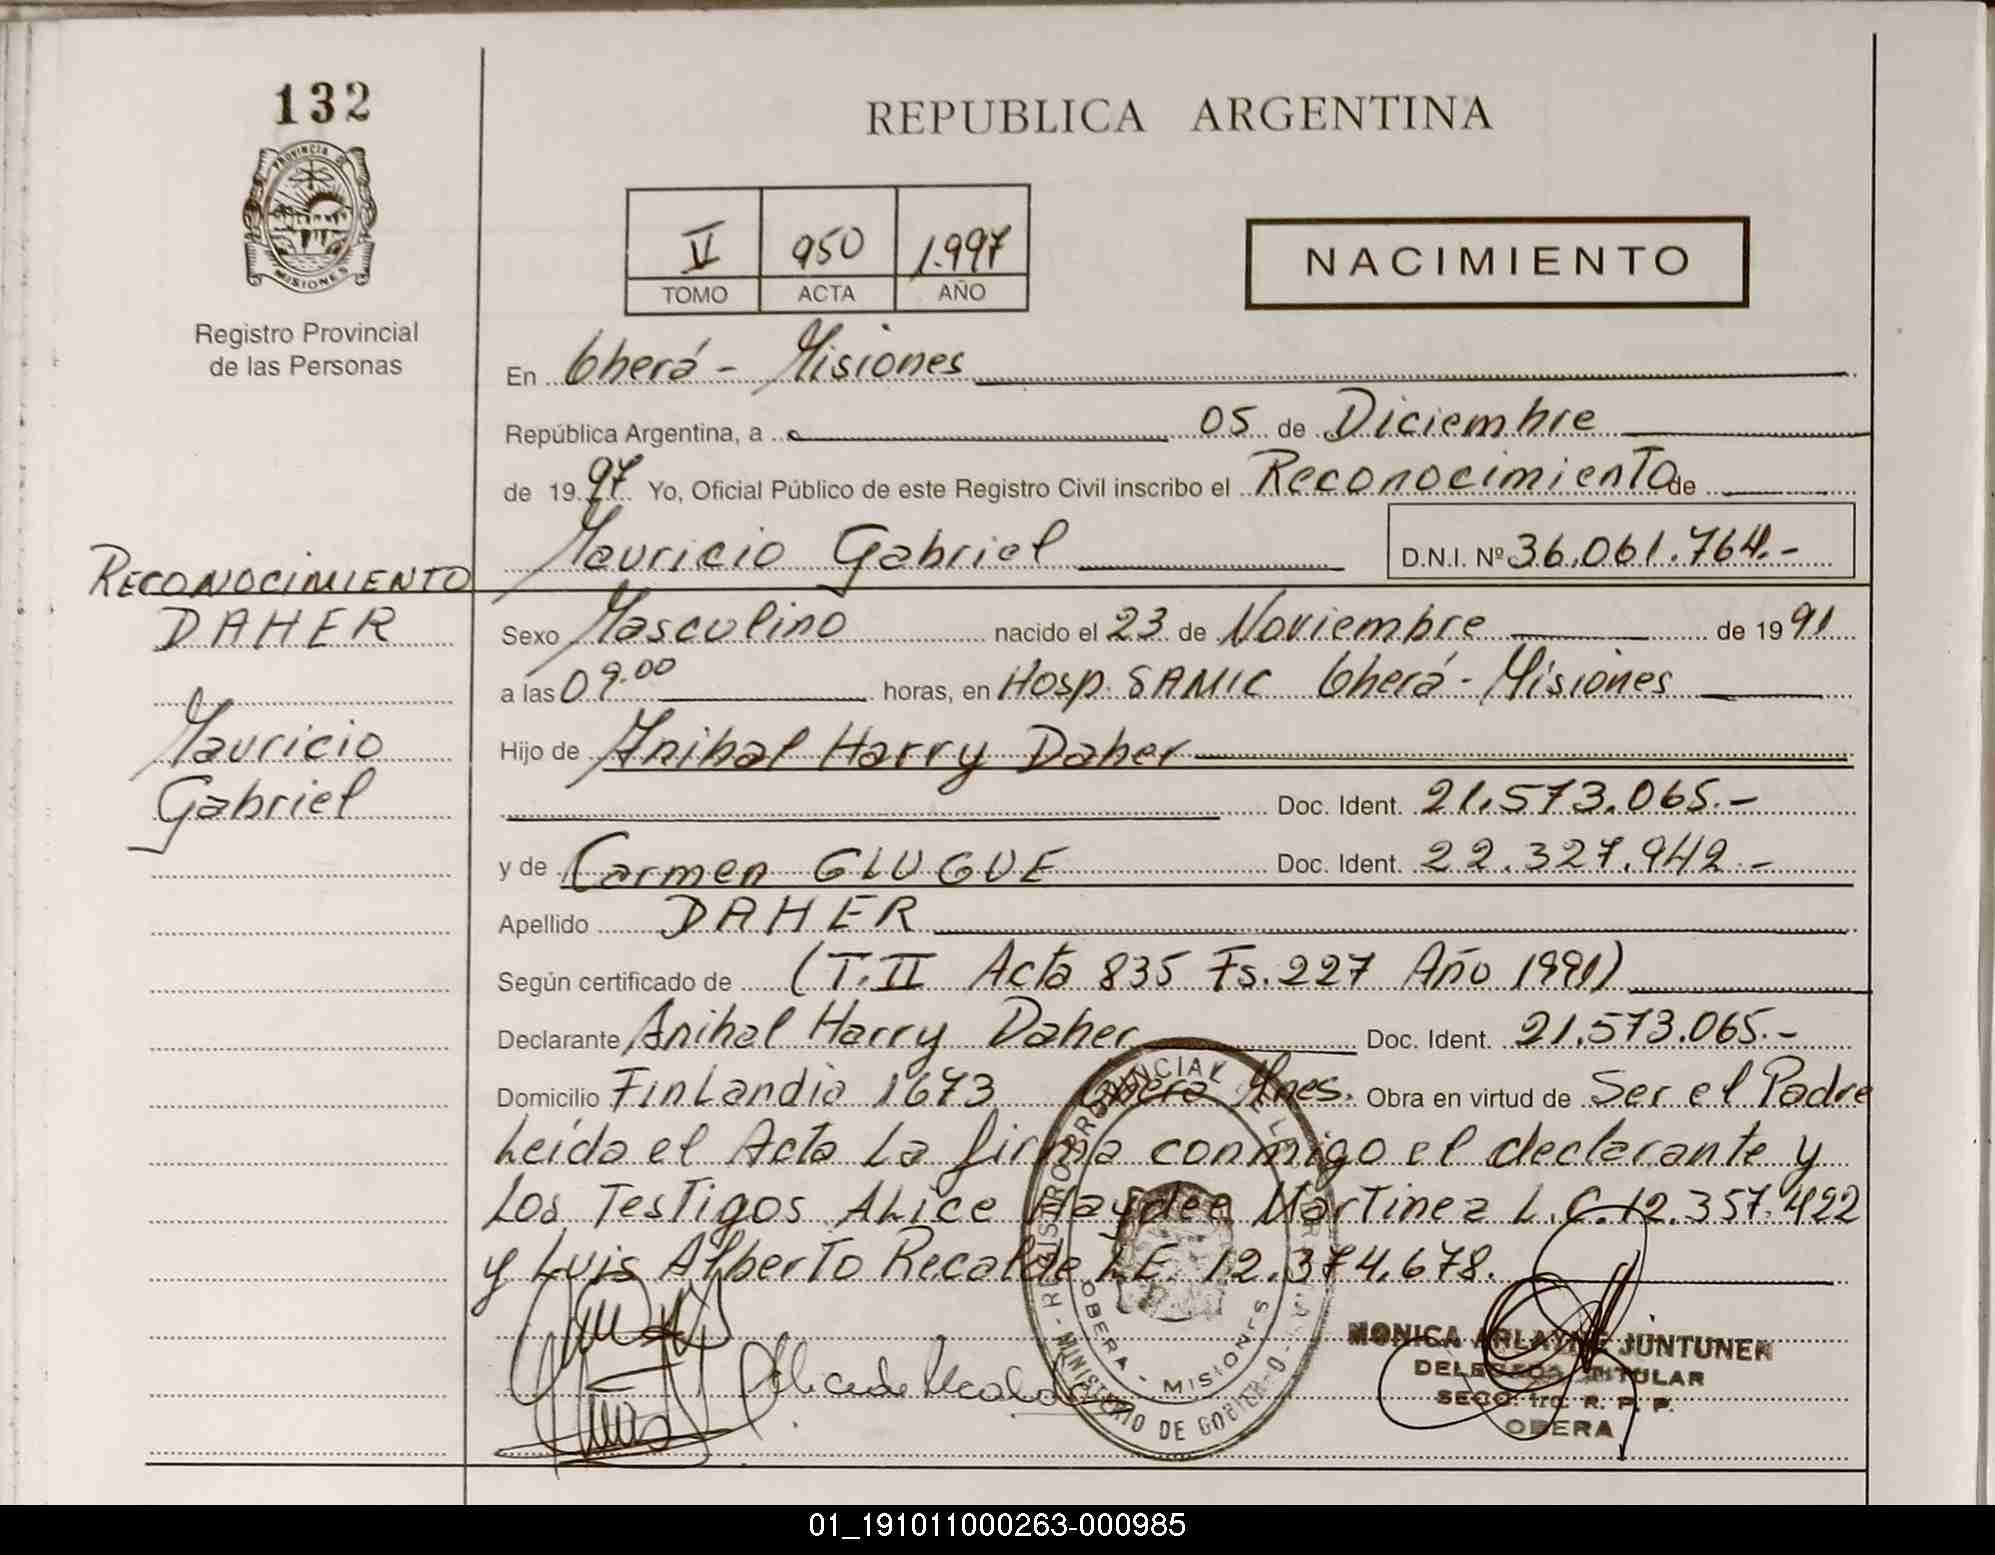 132
REPUBLICA ARGENTINA
PROVINCIA DE
MISIONES
V 950 1.997
TOMO ACTA AÑO
NACIMIENTO
Registro Provincial
de las Personas
En Oberá - Misiones
República Argentina, a 05 de Diciembre
de 19 97 Yo, Oficial Público de este Registro Civil inscribo el Reconocimiento de
Mauricio Gabriel D.N.I. Nº 36.061.764.-
RECONOCIMIENTO
DAHER
Mauricio
Gabriel
Sexo Masculino nacido el 23 de Noviembre de 19 91
a las 09.00 horas, en Hosp. SAMIC Oberá - Misiones
Hijo de Anibal Harry Daher
Doc. Ident. 21.573.065.-
y de Carmen GLUGUE Doc. Ident. 22.327.942.-
Apellido DAHER
Según certificado de (T. II Acta 835 Fs. 227 Año 1991)
Declarante Anibal Harry Daher Doc. Ident. 21.573.065.-
Domicilio Finlandia 1673 Oberá Mnes. Obra en virtud de Ser el Padre
Leída el Acta La firma conmigo el declarante y
Los Testigos Alice Haydee Martinez L.C. 12.357.422
y Luis Alberto Recalde L.E. 12.374.678.
REGISTRO PROVINCIAL DE LAS
MINISTERIO DE GOBIERNO
OBERA - MISIONES
MONICA ARLAYNE JUNTUNEN
DELEGADA TITULAR
SECC. 1ra. R. P. P.
OBERA
01_191011000263-000985